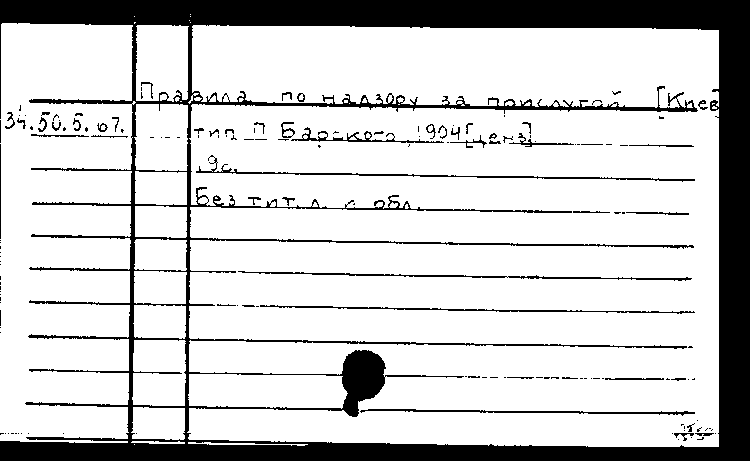 Правила по надзору за прислугой [Киев]
34.50.5.67.
тип П Барского, 1904 [ценз]
9с.
Без тит. л. с обл.